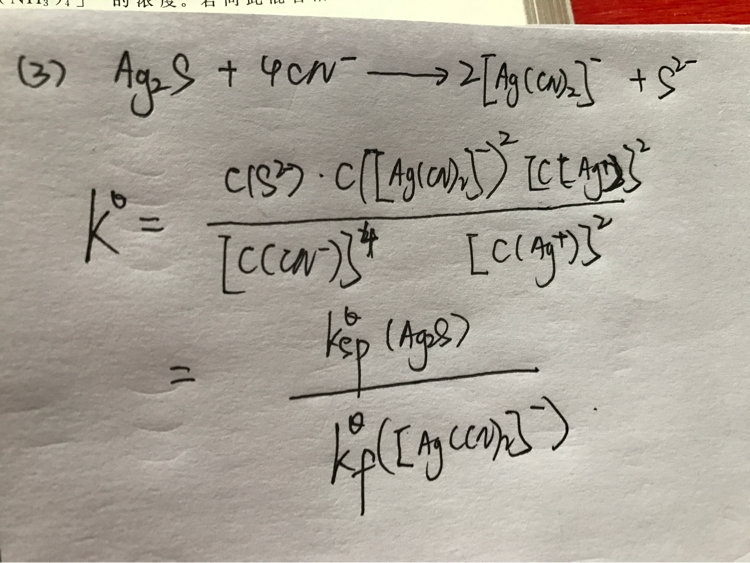 NH₃)₄] 的浓度。若向此混合
(3) Ag₂S + 4CN⁻ ⟶ 2[Ag(CN)₂]⁻ + S²⁻
K^θ = \frac{C(S²⁻)·C([Ag(CN)₂]⁻)² [C[Ag⁺]]²}{[C(CN⁻)]⁴ [C(Ag⁺)]²}
= \frac{K_{sp}^θ (Ag₂S)}{K_f^θ([Ag(CN)₂]⁻)}.